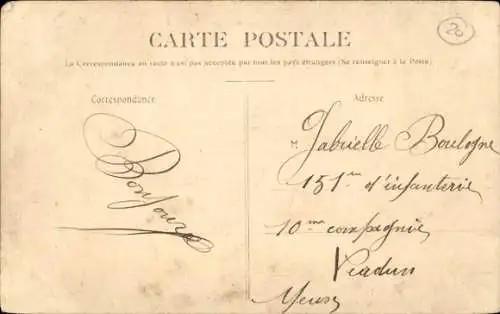 CARTE POSTALE
20
La Correspondance au recto n'est pas acceptée par tous les pays étrangers (Se renseigner à la Poste)
Correspondance
Bonjour
Adresse
M Gabrielle Boulogne
151me d'infanterie
10me compagnie
Verdun
Meuse